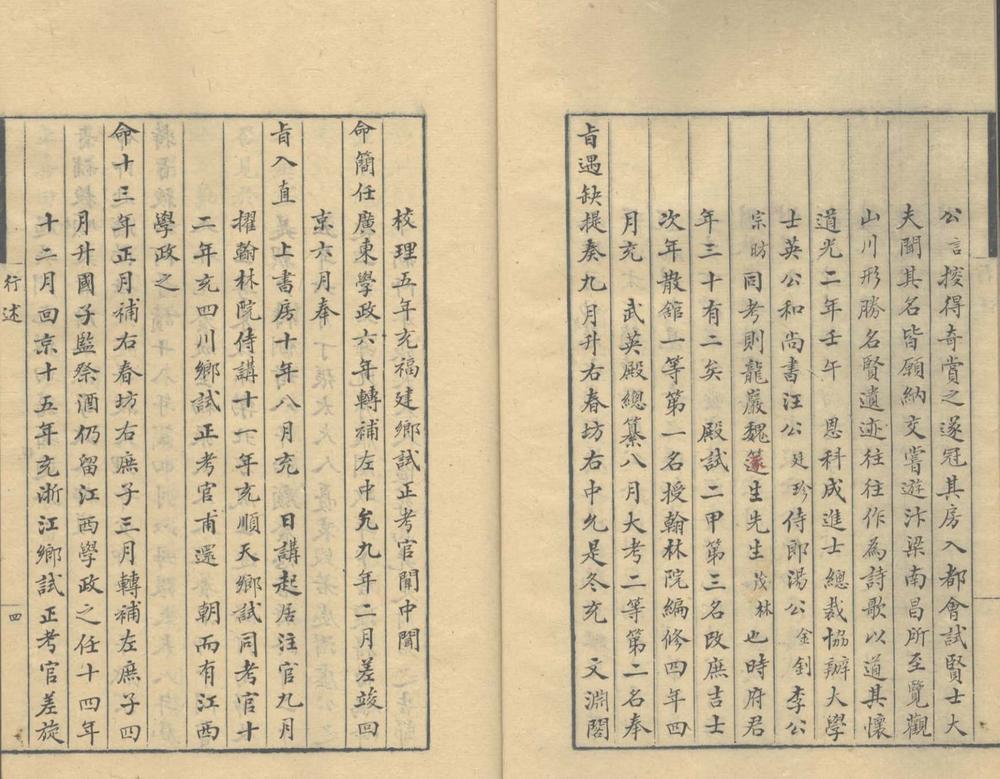 公言搜得奇賞之遂冠其房入都會試賢士大
夫聞其名皆願納交嘗遊汴梁南昌所至覽觀
山川形勝名賢遺迹往往作為詩歌以道其懷
道光二年壬午 恩科成進士總裁協辦大學
士英公和尚書汪公廷珍侍郎湯公金釗李公
宗昉同考則龍巖魏篴生先生茂林也時府君
年三十有二矣 殿試二甲第三名改庶吉士
次年散館一等第一名授翰林院編修四年四
月充 武英殿總纂八月大考二等第二名奉
旨遇缺提奏九月升右春坊右中允是冬充 文淵閣
校理五年充福建鄉試正考官闈中聞
命簡任廣東學政六年轉補左中允九年二月差竣回
京六月奉
旨入直 上書房十年八月充 日講起居注官九月
擢翰林院侍講十一年充順天鄉試同考官十
二年充四川鄉試正考官甫還 朝而有江西
學政之
命十三年正月補右春坊右庶子三月轉補左庶子四
月升國子監祭酒仍留江西學政之任十四年
十二月回京十五年充浙江鄉試正考官差旋
行述
四